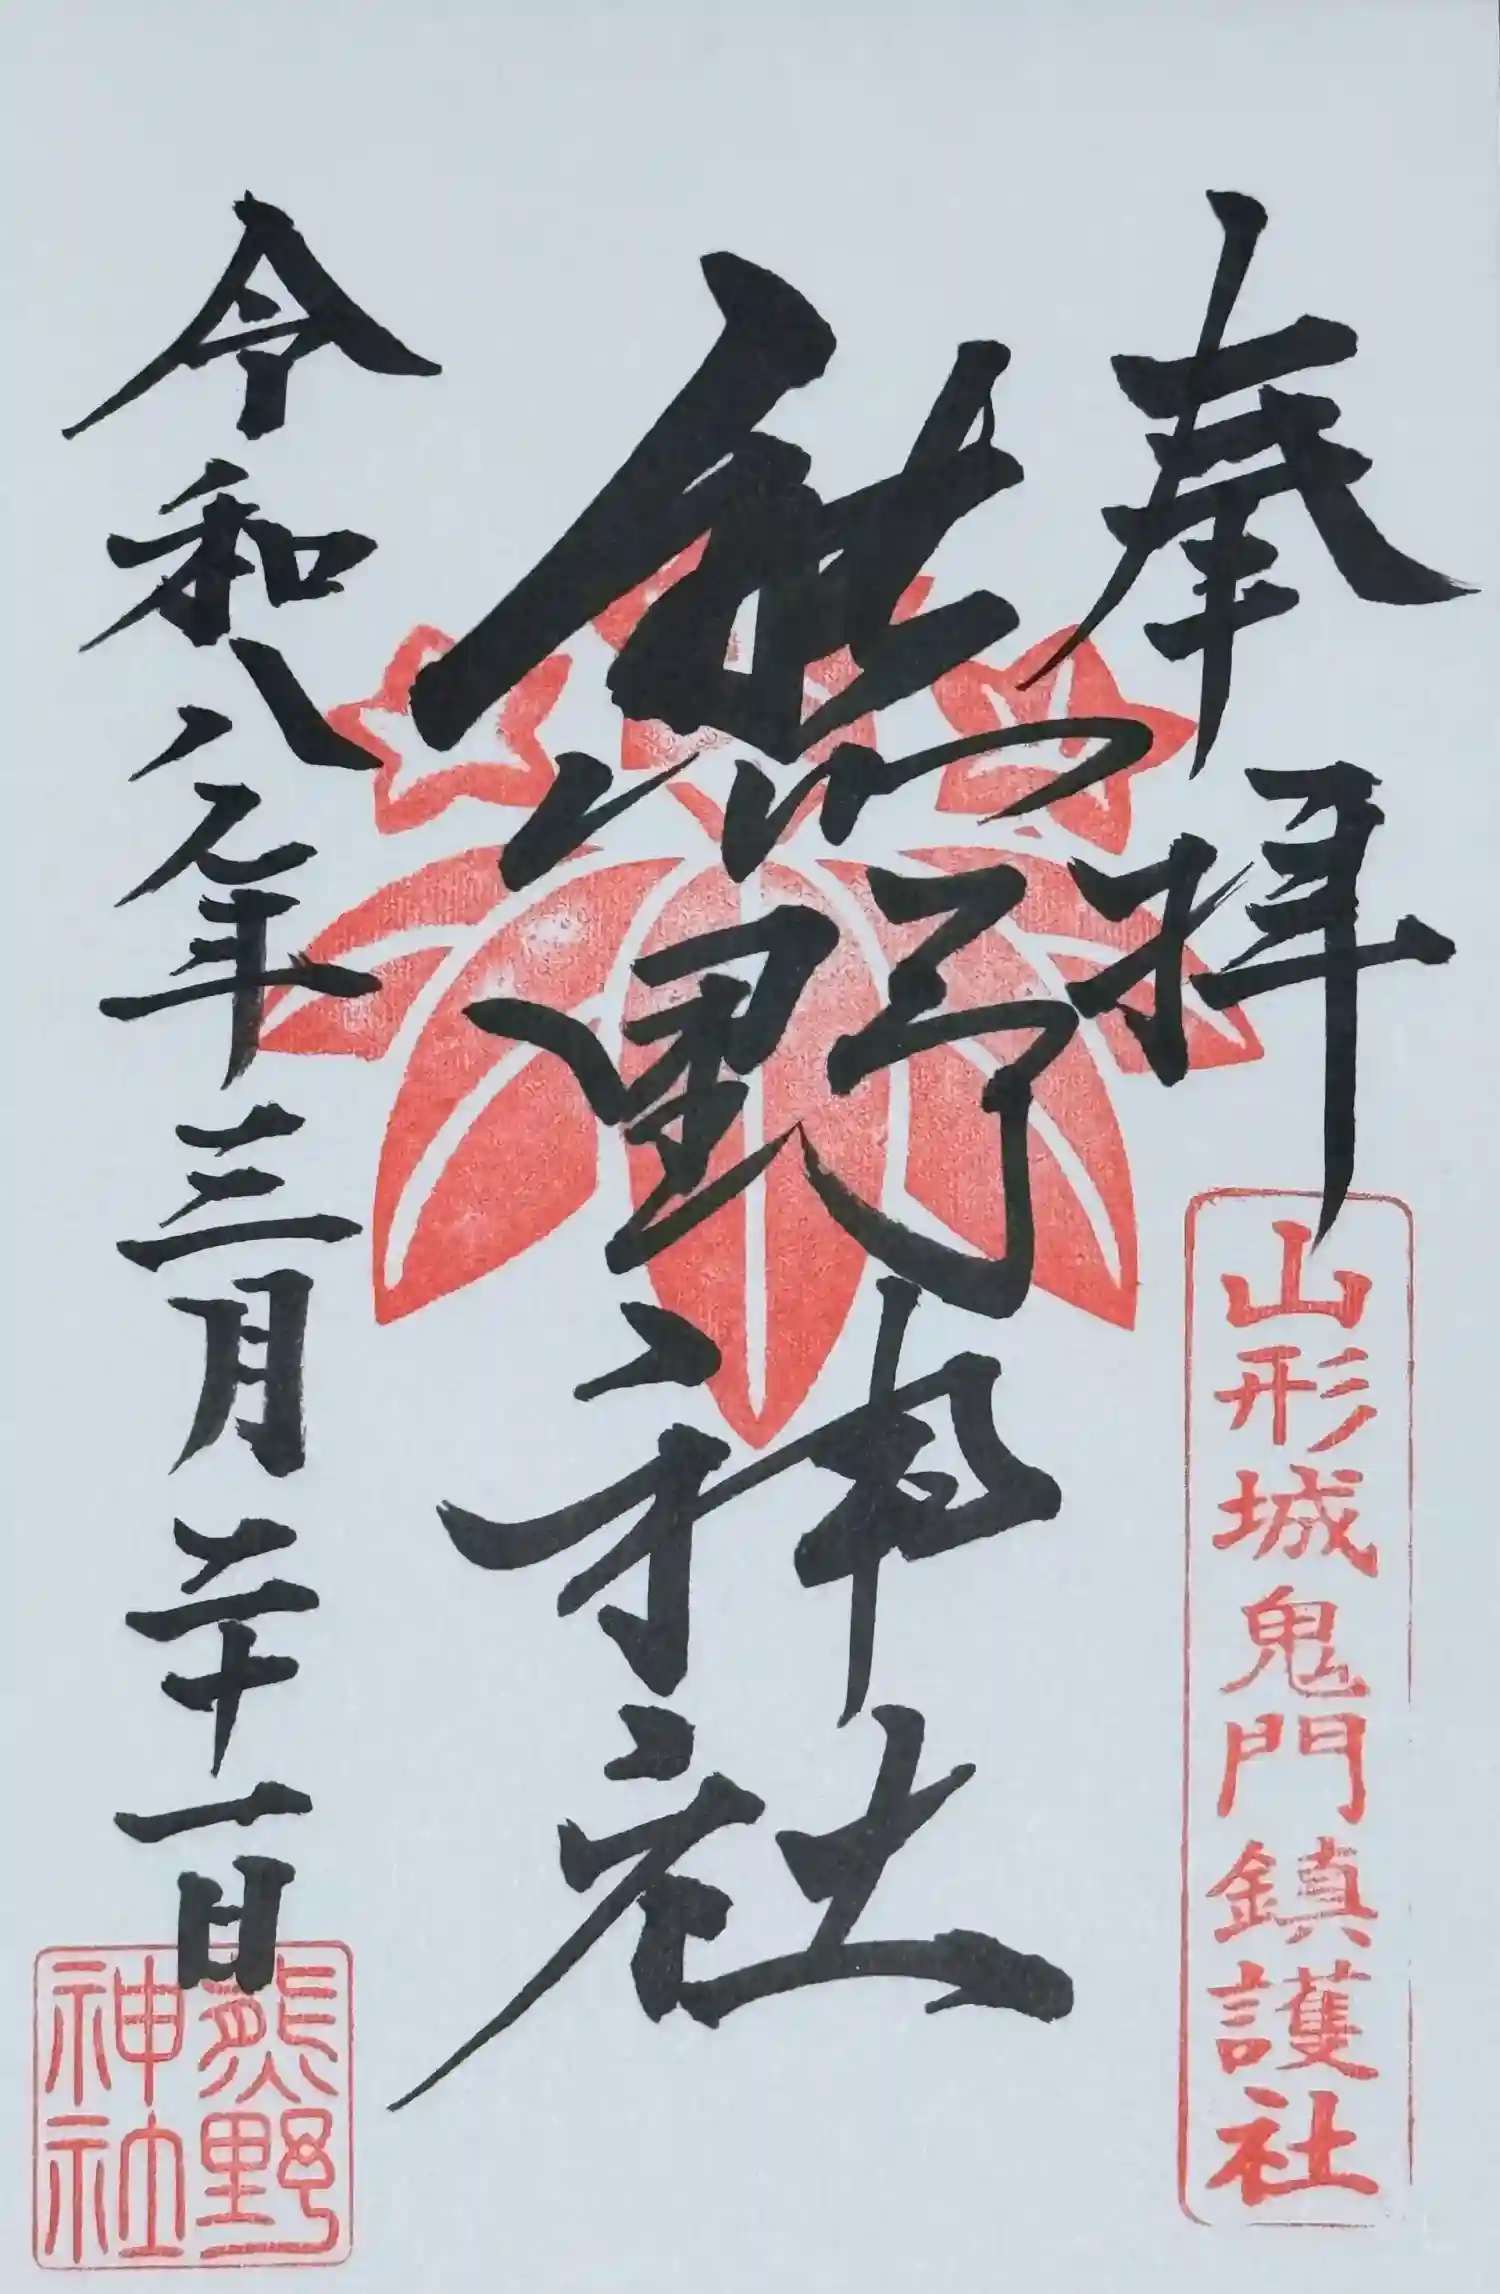 奉拝
山形城鬼門鎮護社
熊野神社
令和八年三月二十一日
熊野
神社